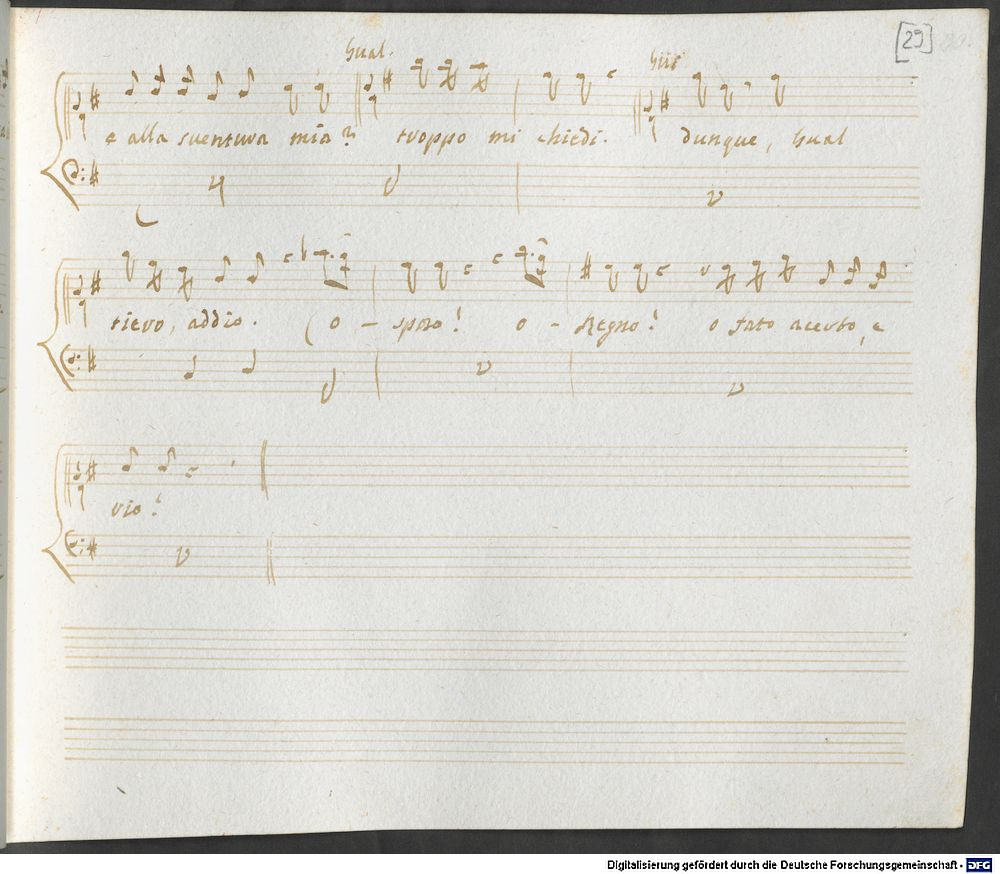 [29]
Gual.
e alla sventura mia? troppo mi chiedi. dunque, Gual
tievo, addio. (o - sposo! o - Regno! o fato acerbo, e
rio!
Digitalisierung gefördert durch die Deutsche Forschungsgemeinschaft - DFG